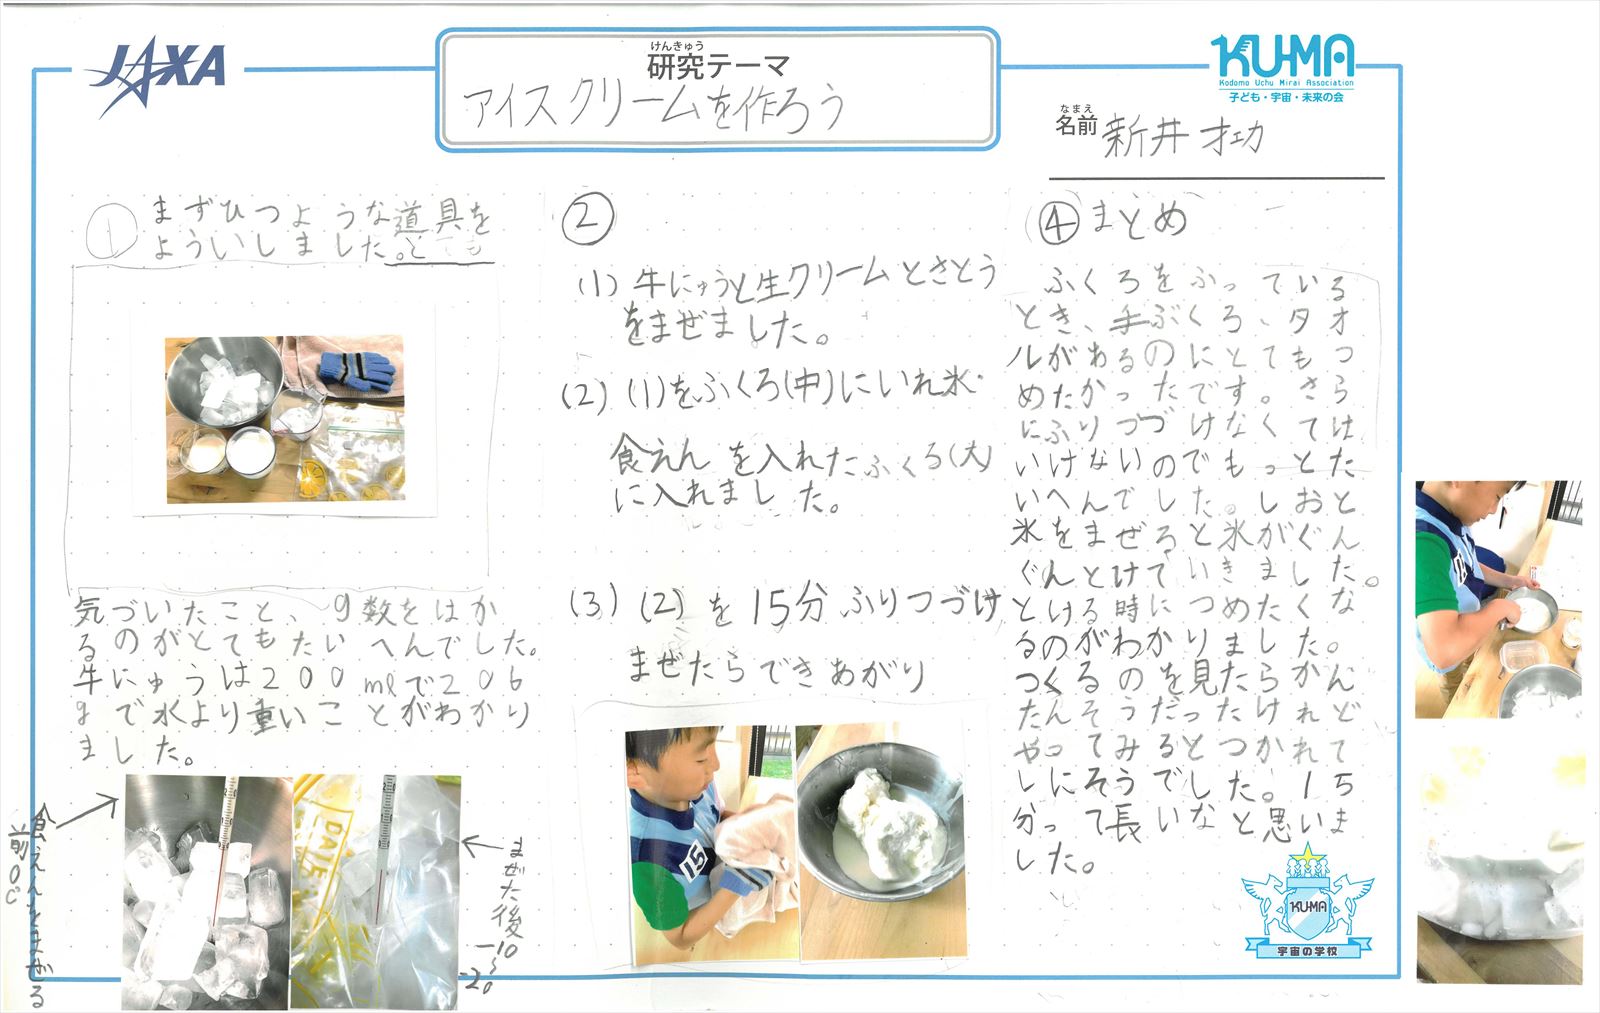 JAXA
けんきゅう
研究テーマ
アイスクリームを作ろう
KU-MA
Kodomo Uchu Mirai Association
子ども・宇宙・未来の会
なまえ
名前
新井
①
まずひつような道具を
よういしました。とても
気づいたこと、g数をはか
るのがとてもたいへんでした。
牛にゅうは200mlで206
gで水より重いことがわかり
ました。
食えんをまぜる
前0℃
まぜた後
-10
~
-20
②
(1) 牛にゅうと生クリームとさとう
をまぜました。
(2) (1)をふくろ(中)にいれ氷・
食えんを入れたふくろ(大)
に入れました。
(3) (2)を15分ふりつづけ
まぜたらできあがり
15
④まとめ
ふくろをふっている
とき、手ぶくろ、タオ
ルがあるのにとてもつ
めたかったです。さら
にふりつづけなくては
いけないのでもっとた
いへんでした。しおと
氷をまぜると氷がぐん
ぐんとけていきました。
とける時につめたくな
るのがわかりました。
つくるのを見たらかん
たんそうだったけれど
やってみるとつかれて
しにそうでした。15
分って長いなと思いま
した。
KU-MA
宇宙の学校